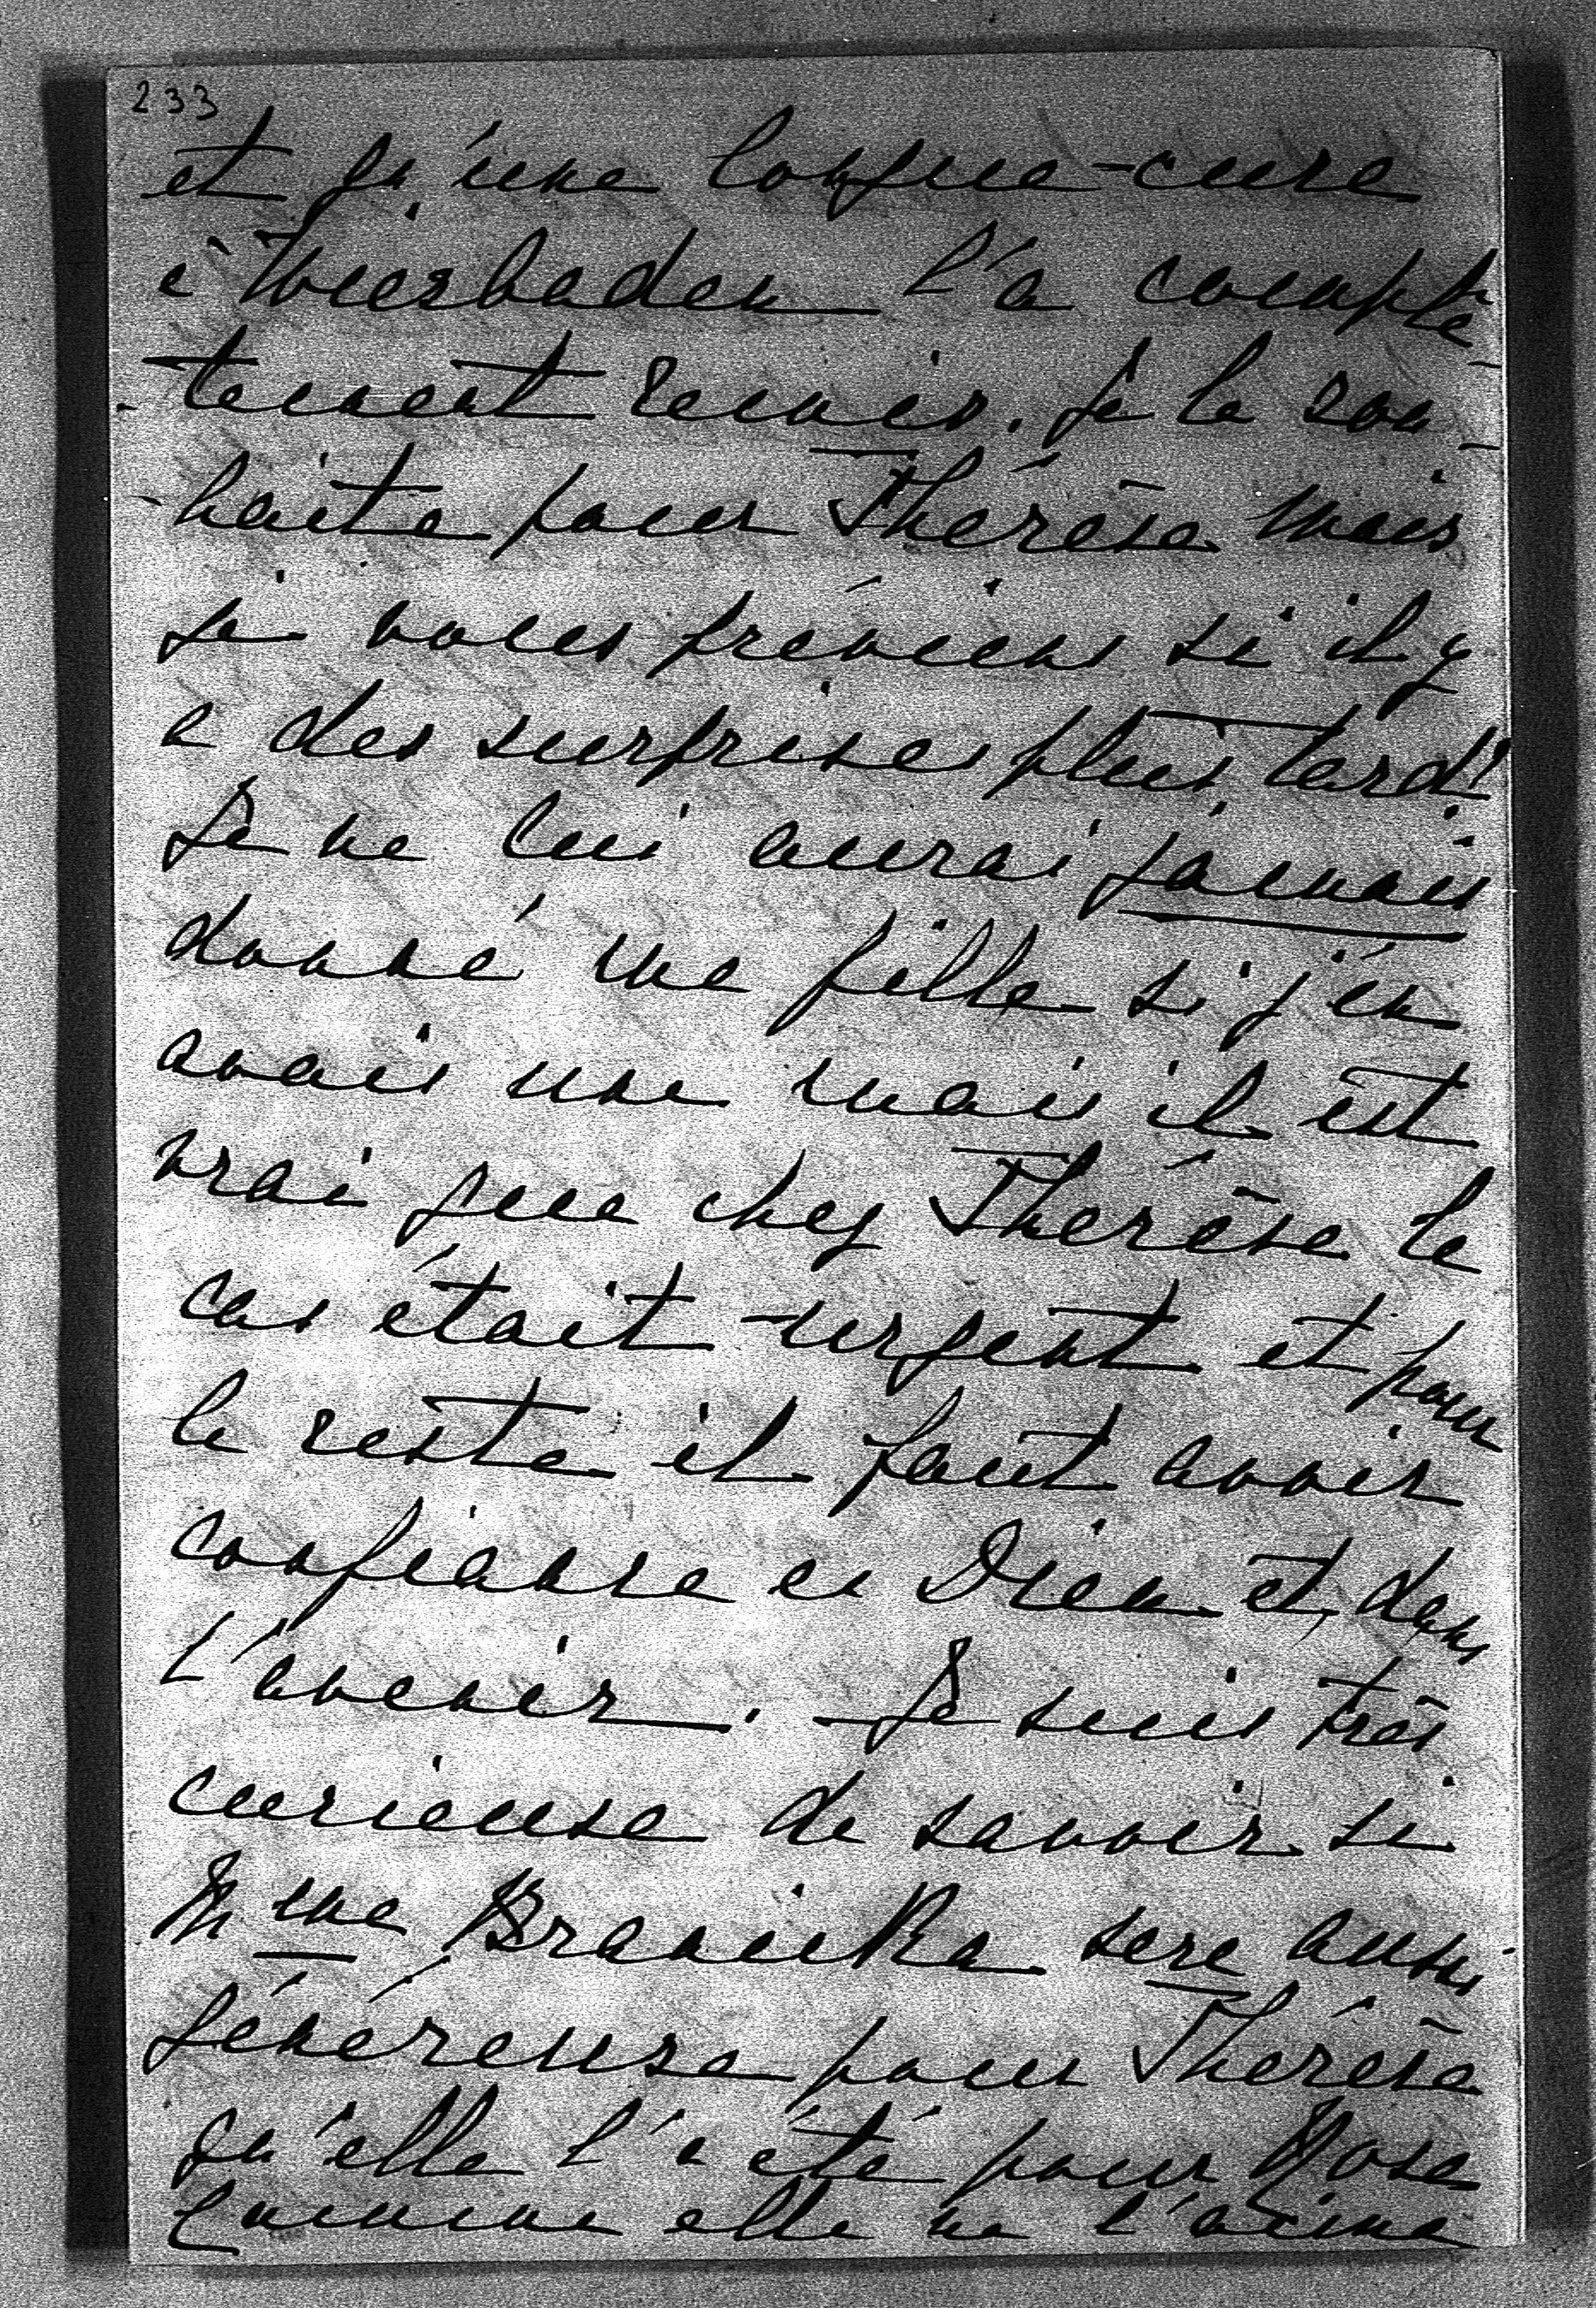 233
et qu'une longue cure
à Wiesbaden l'a complè-
-tement remis. Je le sou-
-haite pour Thérèse mais
je vous préviens si il y
a des surprises plus tard!
Je ne lui aurai jamais
donné une fille si j'en
avais une mais il est
vrai que chez Thérèse le
cas était urgent et pour
le reste il faut avoir
confiance en Dieu et dans
l'avenir. — Je suis très
curieuse de savoir si
Mme Branicka sera aussi
généreuse pour Thérèse
qu'elle l'a été pour Rose
Comme elle ne l'aime